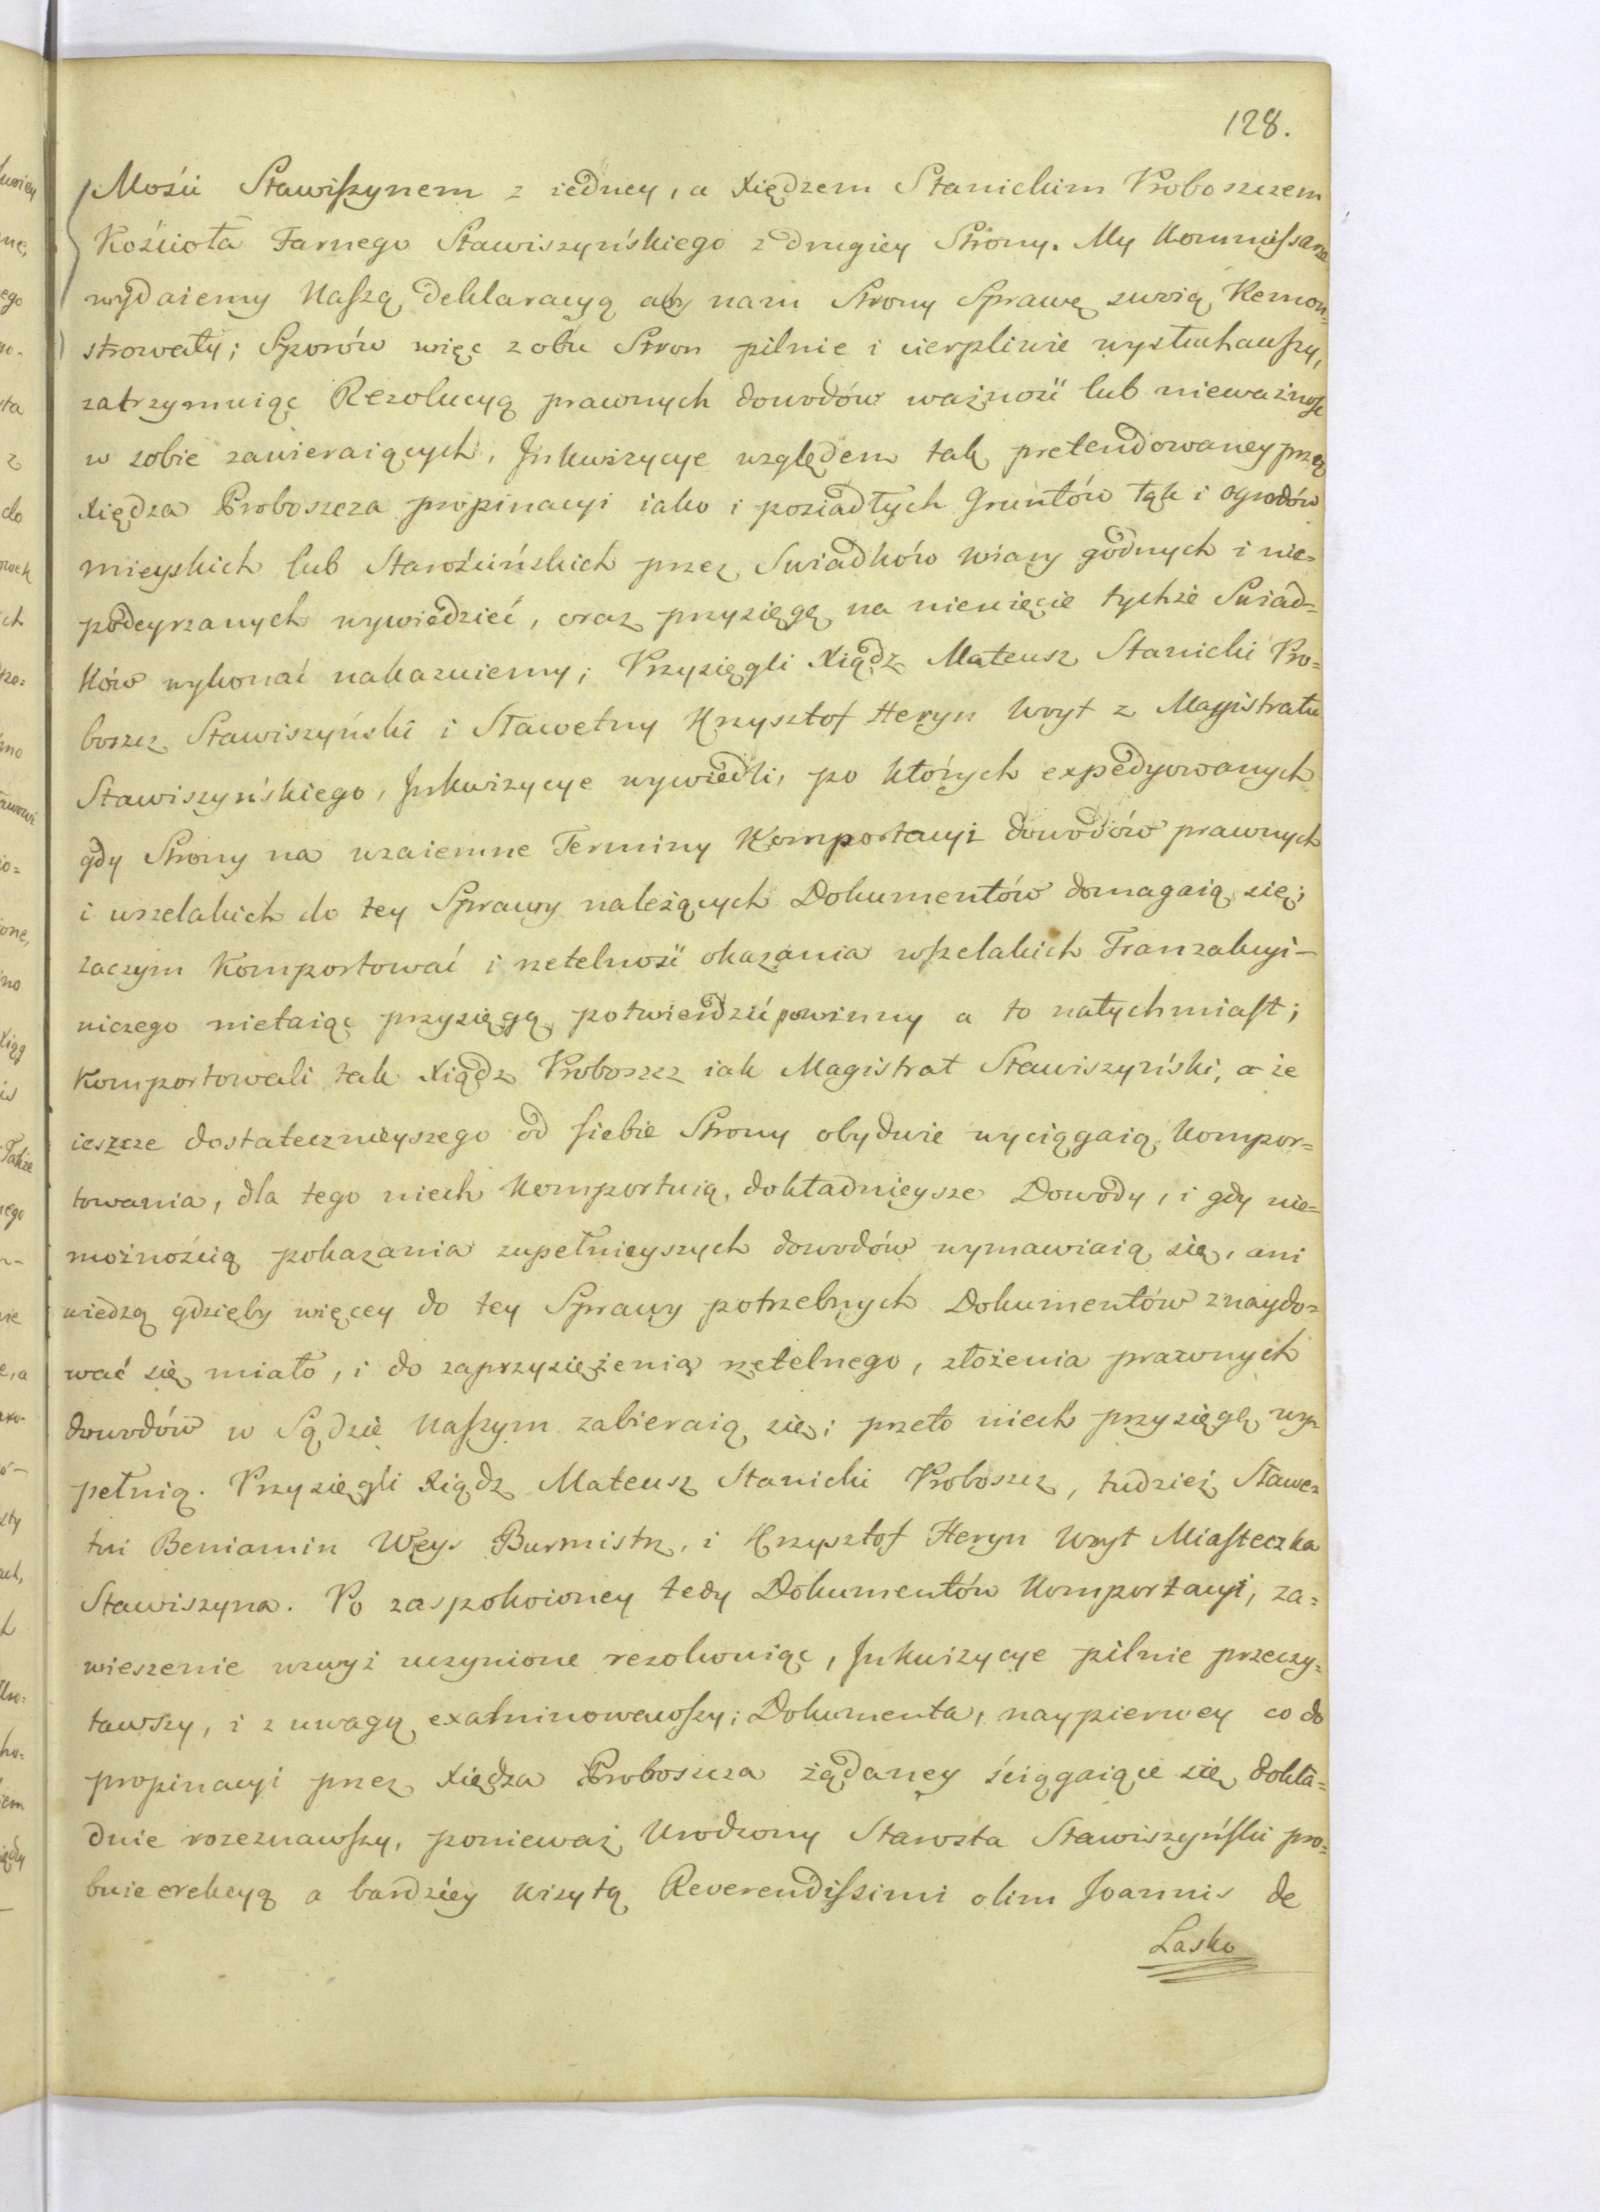 128.
Mośći Stawiszynem z iedney, a Xiędzem Stanickim Proboszczem
Kościoła Farnego Stawiszyńskiego z drugiey Strony. My Kommissarze
wydaiemy Naszą deklaracyą aby nam Strony Sprawę swoią Remon=
strowały; Sporów więc z obu Stron pilnie i cierpliwie wysłuchawszy,
zatrzymuiąc Rezolucyą prawnych dowodów ważność lub nieważność
w sobie zawieraiących, Jnkwizycye względem tak pretendowaney przez
Xiędza Proboszcza propinacyi iako i posiadłych Gruntów łąk i ogrodów
mieyskich lub Starościńskich przez Swiadków wiary godnych i nie=
podeyrzanych wywiedzieć, oraz przysięgę na nieuięcie tychże Swiad=
ków wykonać nakazuiemy; Przysięgli Xiądz Mateusz Stanicki Pro=
boszcz Stawiszyński i Sławetny Krzysztof Heryn Woyt z Magistratu
Stawiszyńskiego, Jnkwizycye wywiedli, po których expedyowanych
gdy Strony na wzaiemne Terminy Komportacyi dowodów prawnych
i wszelakich do tey Sprawy należących Dokumentów domagaią się;
zaczym Komportować i rzetelność okazania wszelakich Tranzakcyi–
niczego nietaiąc przysięgą potwierdzić powinny a to natychmiast;
Komportowali tak Xiądz Proboszcz iak Magistrat Stawiszyński, a że
ieszcze dostatecznieyszego od siebie Strony obydwie wyciągaią Kompor=
towania, dla tego niech Komportuią dokładnieysze Dowody, i gdy nie=
możnością pokazania zupełnieyszych dowodów wymawiaią się, ani
wiedzą gdzieby więcey do tey Sprawy potrzebnych Dokumentów znaydo=
wać się miało, i do zaprzysiężenia rzetelnego, złożenia prawnych
dowodów w Sądzie Naszym zabieraią się; przeto niech przysięgę wy=
pełnią. Przysięgli Xiądz Mateusz Stanicki Proboszcz, tudzież Sławe=
tni Beniamin Weys Burmistrz, i Krzysztof Heryn Woyt Miasteczka
Stawiszyna. Po zaspokoioney tedy Dokumentów Komportacyi, za=
wieszenie wzwyż uczynione rezolwuiąc, Jnkwizycye pilnie przeczy=
tawszy, i z uwagą examinowawszy; Dokumenta, naypierwey co do
propinacyi przez Xiędza Proboszcza żądaney ściągaiące się dokła=
dnie rozeznawszy, ponieważ Urodzony Starosta Stawiszyński pro=
buie erekcyą a bardziey wizytą Reverendissimi olim Joannis de
Lasko